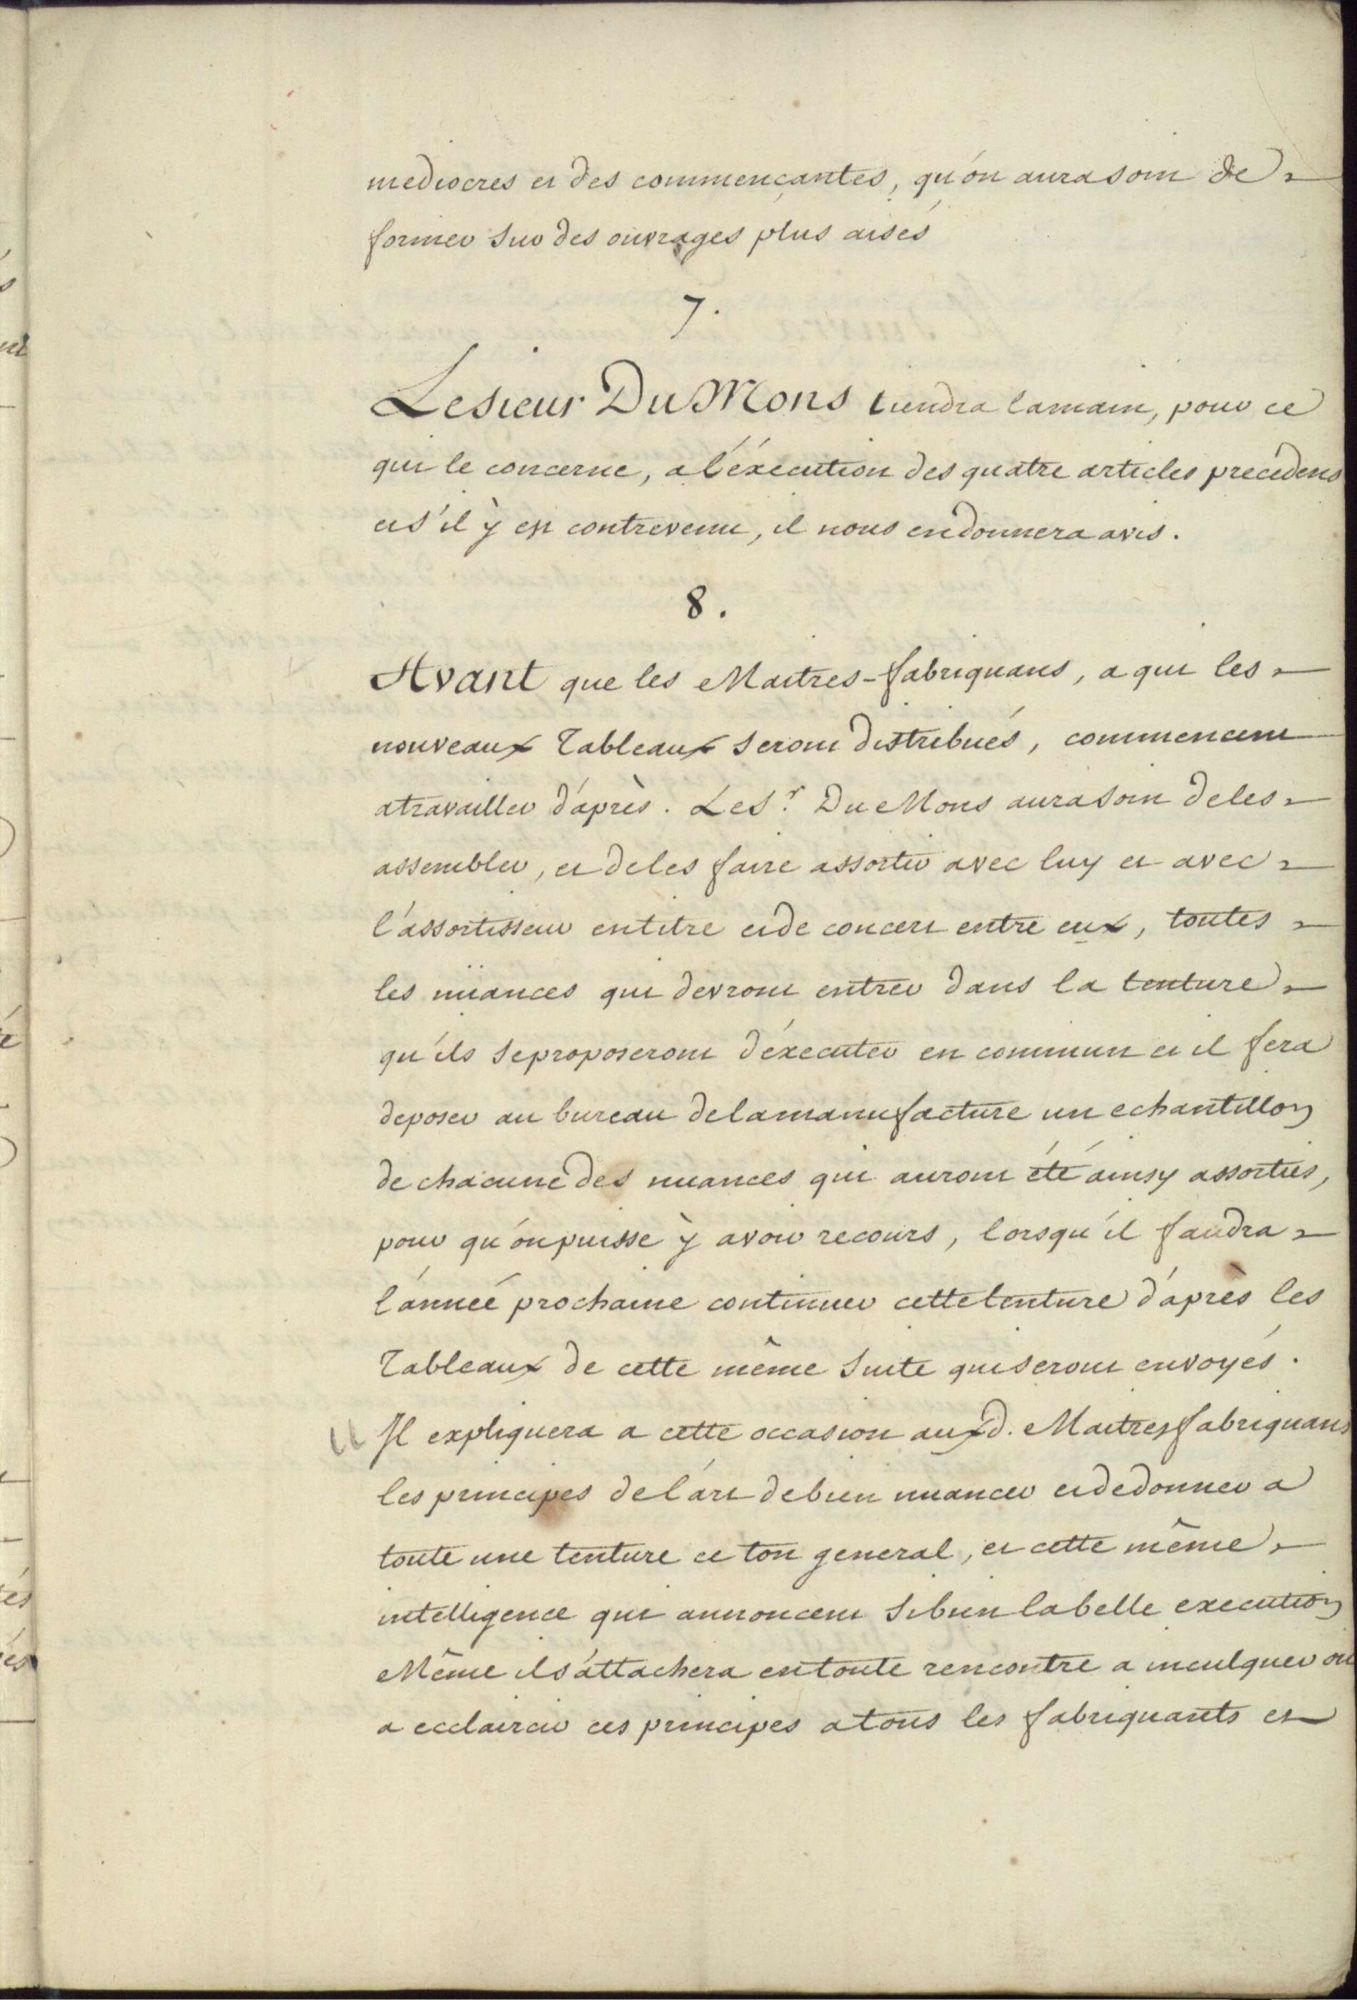 mediocres et des commençantes, qu'on aura soin de
former sur des ouvrages plus aisés
7.
Le sieur Du Mons tiendra la main, pour ce
qui le concerne, a l'éxécution des quatre articles precedens
et s'il ÿ est contrevenu, il nous en donnera avis.
8.
Avant que les Maitres-fabriquans, a qui les
nouveaux Tableaux seront distribués, commencent
a travailler d'après. Le S.r Du Mons aura soin de les
assembler, et de les faire assortir avec luy et avec
l'assortisseur en titre et de concert entre eux, toutes
les nüances qui devront entrer dans la tenture
qu'ils se proposeront d'éxecuter en commun et il fera
deposer au bureau de la manufacture un echantillon
de chacune des nuances qui auront été ainsy assorties,
pour qu'on puisse ÿ avoir recours, lorsqu'il faudra
l'année prochaine continuer cette tenture d'après les
Tableaux de cette même suite qui seront envoyés.
Il expliquera a cette occasion auxd. Maitres fabriquans
les principes de l'art de bien nuancer et de donner a
toute une tenture ce ton general, et cette même
intelligence qui annoncent si bien la belle execution
Même il s'attachera en toute rencontre a inculquer ou
a ecclaircir ces principes a tous les fabriquants et